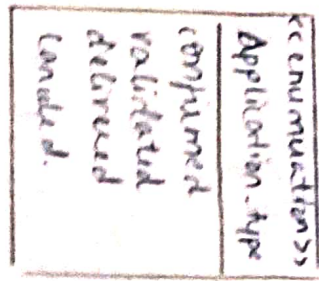 <<enumeration>>
Application_type
confirmed
validated
delivered
canceled.